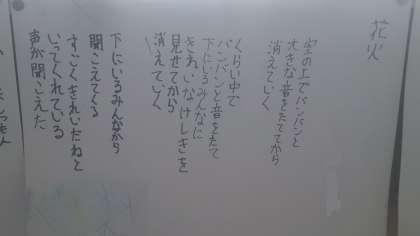 花火
空の上でバンバンと
大きな音をたててから
消えていく
くらい中で
バンバンと音をたて
下にいるみんなに
きれいなけしきを
見せてから
消えていく
下にいるみんなから
聞こえてくる
すごくきれいだねと
いってくれている
声が聞こえた